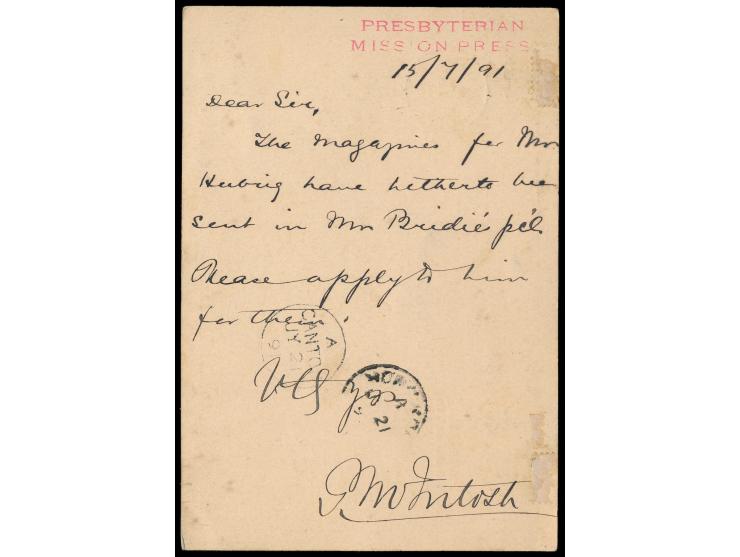 PRESBYTERIAN
MISSION PRESS
15/7/91
Dear Sir,
The Magazines for Mr
have hitherto been
sent in Mr Bridie's pcl.
Please apply to him
for them.
A
CANTO
JY 2
9
HONG K
A
21
G McIntosh